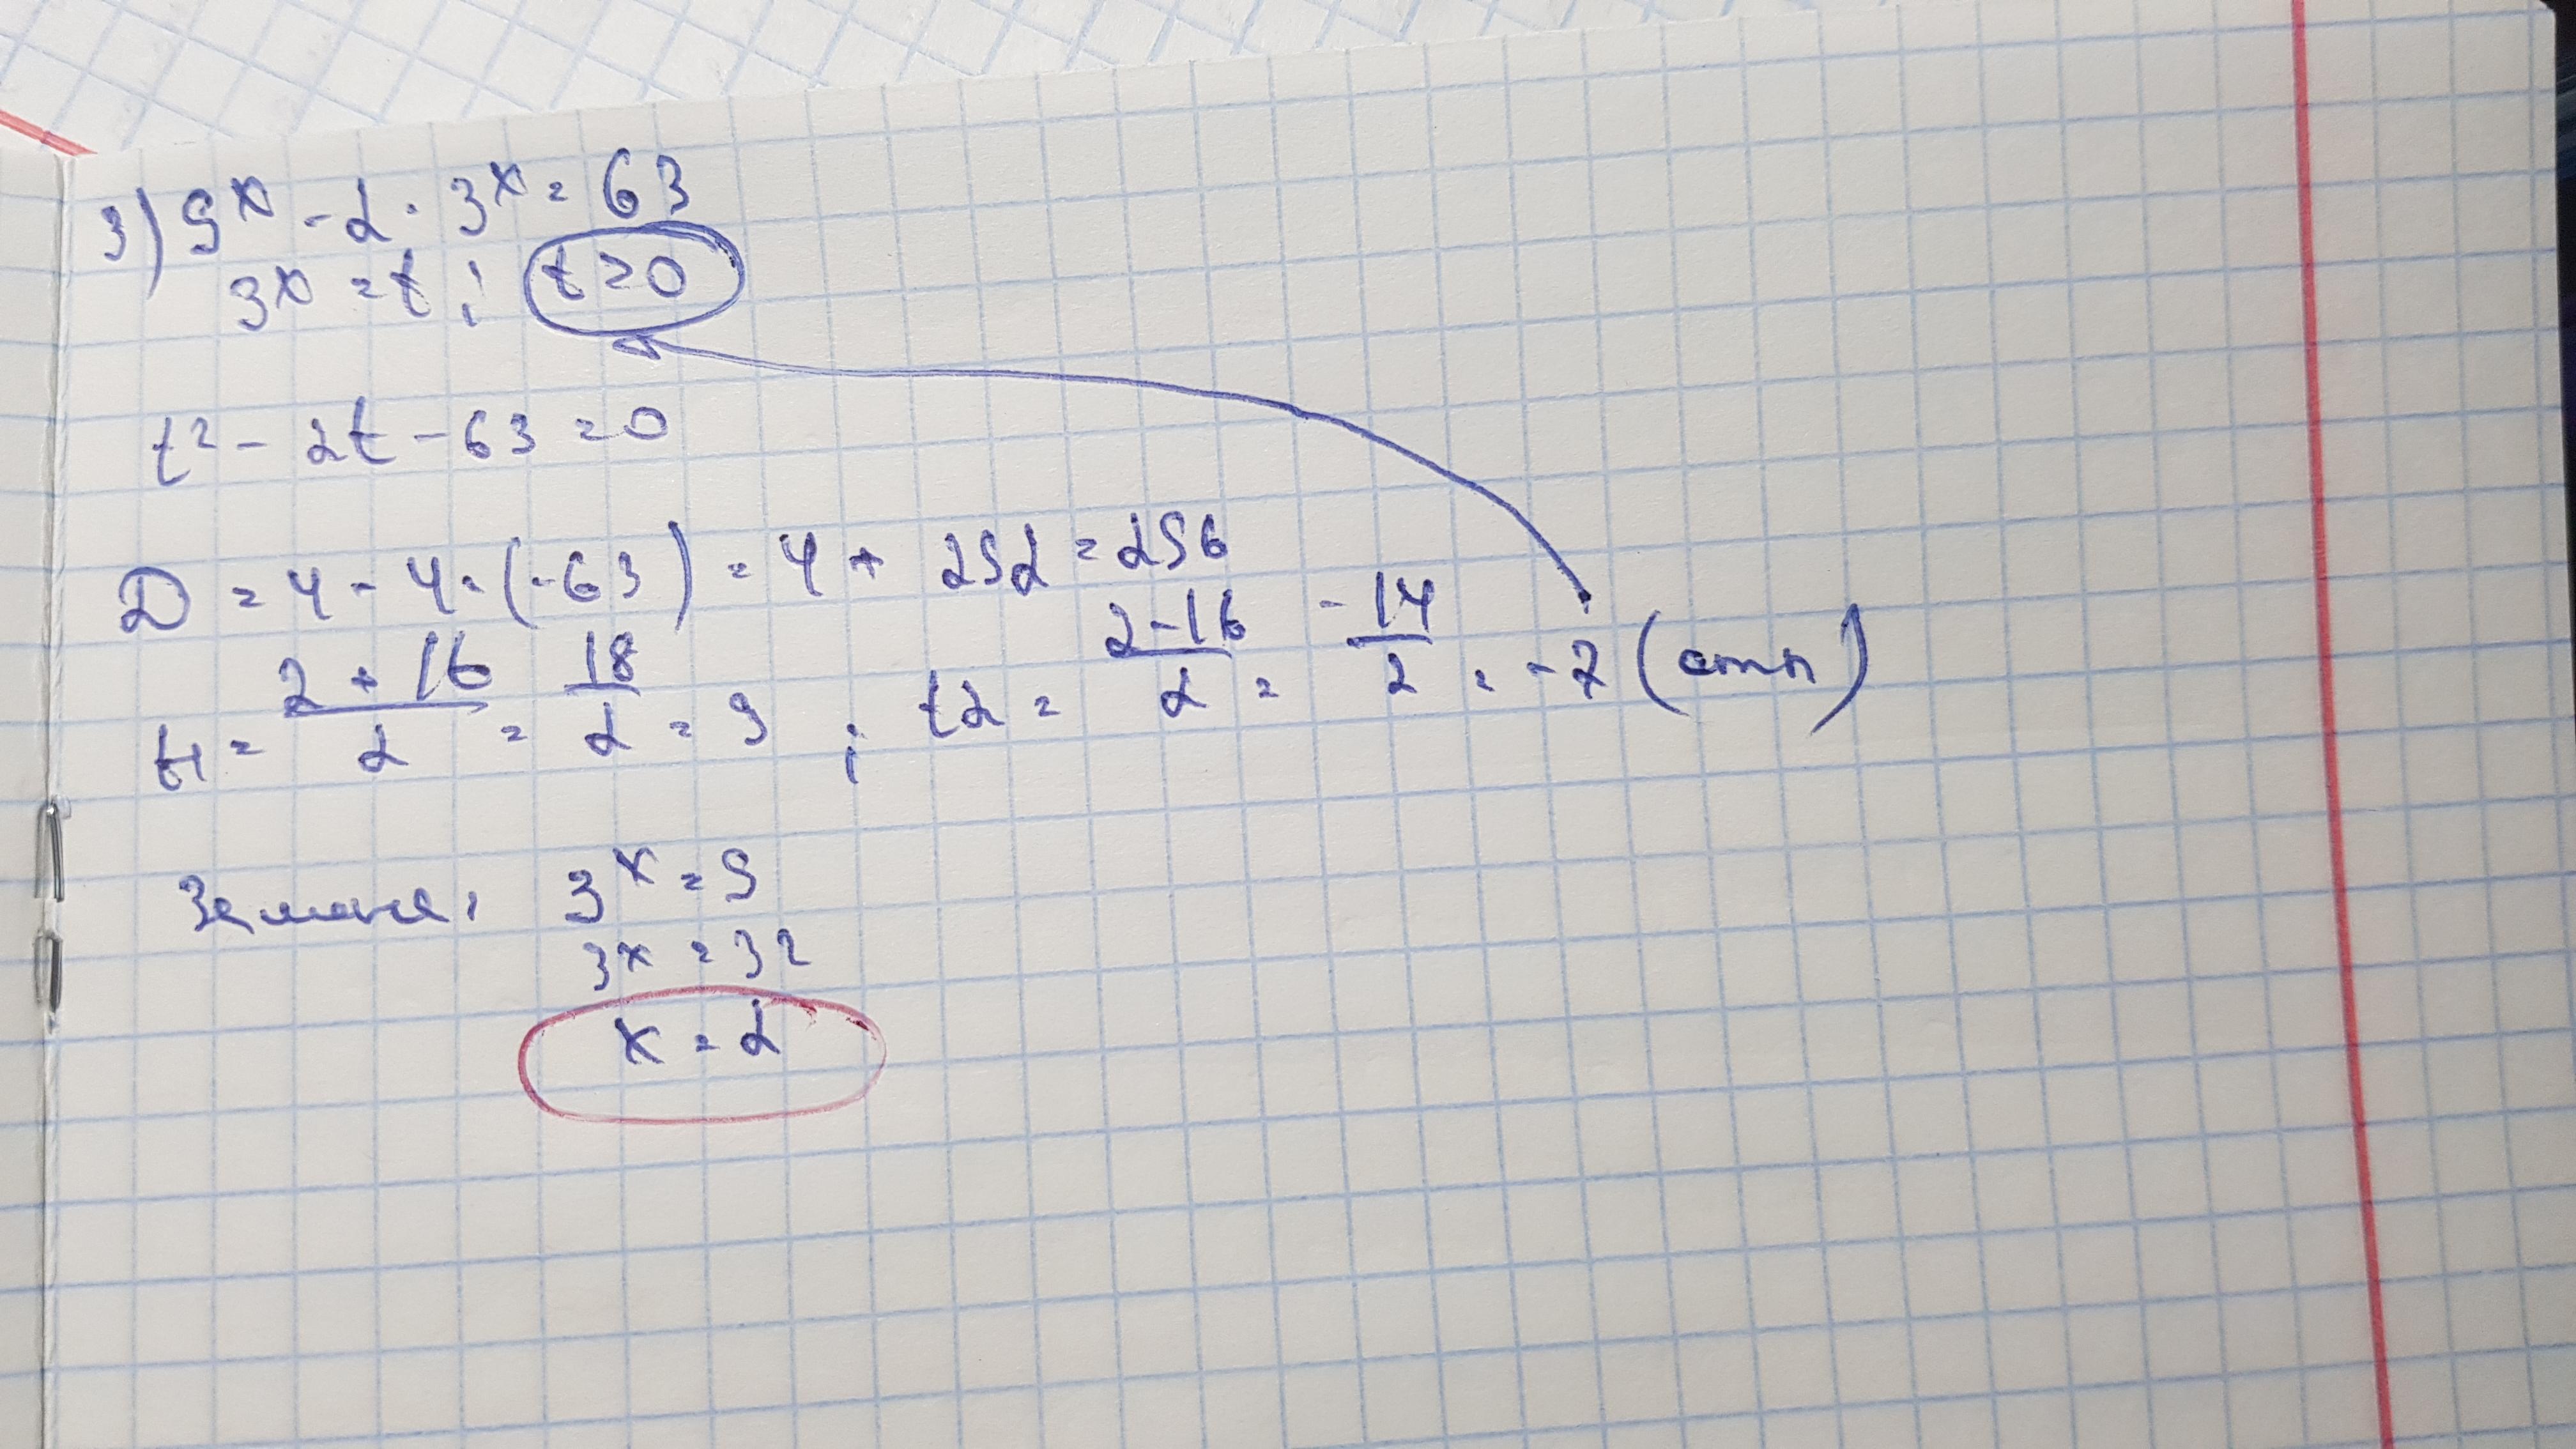 3) 9ˣ - 2 · 3ˣ = 63
3ˣ = t ; t > 0
t² - 2t - 63 = 0
D = 4 - 4 · (-63) = 4 + 252 = 256
t1 = (2 + 16)/2 = 18/2 = 9 ; t2 = (2-16)/2 = -14/2 = -7 (отп)
Замена: 3ˣ = 9
3ˣ = 3²
x = 2